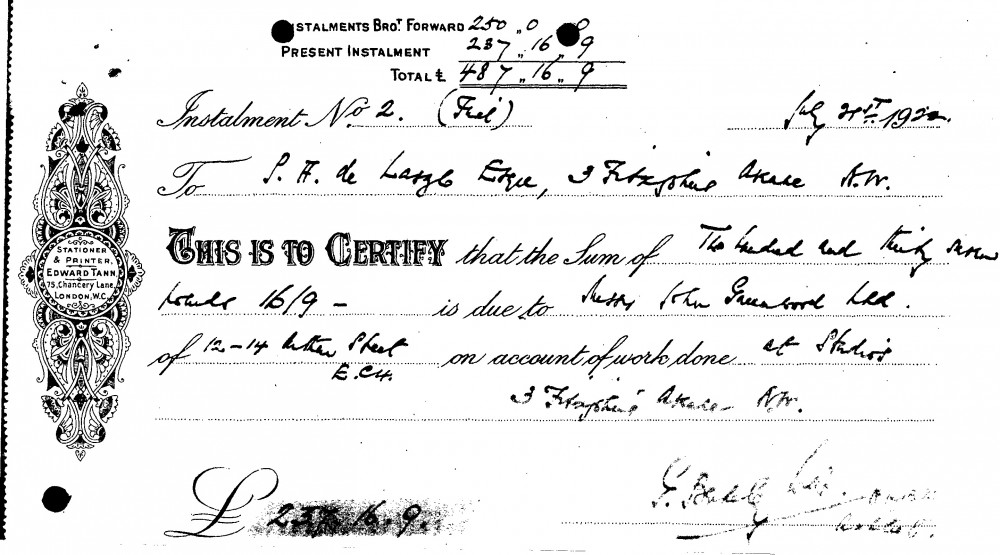 INSTALMENTS BROT. FORWARD 250 „ 0 „ 0
PRESENT INSTALMENT 237 „ 16 „ 9
TOTAL £ 487 „ 16 „ 9
Instalment No. 2. July 21st 1922.
To P. A. de Laszlo Esqre, 3 Fitzjohns Avenue N.W.
THIS IS TO CERTIFY that the Sum of Two hundred and thirty seven
pounds 16/9 – is due to Messrs John Greenwood Ltd.
of 12–14 Street on account of work done at Studios
E.C.4.
3 Fitzjohns Avenue N.W.
£ 237 16. 9.
STATIONER
& PRINTER,
EDWARD TANN,
75, Chancery Lane,
LONDON, W.C.